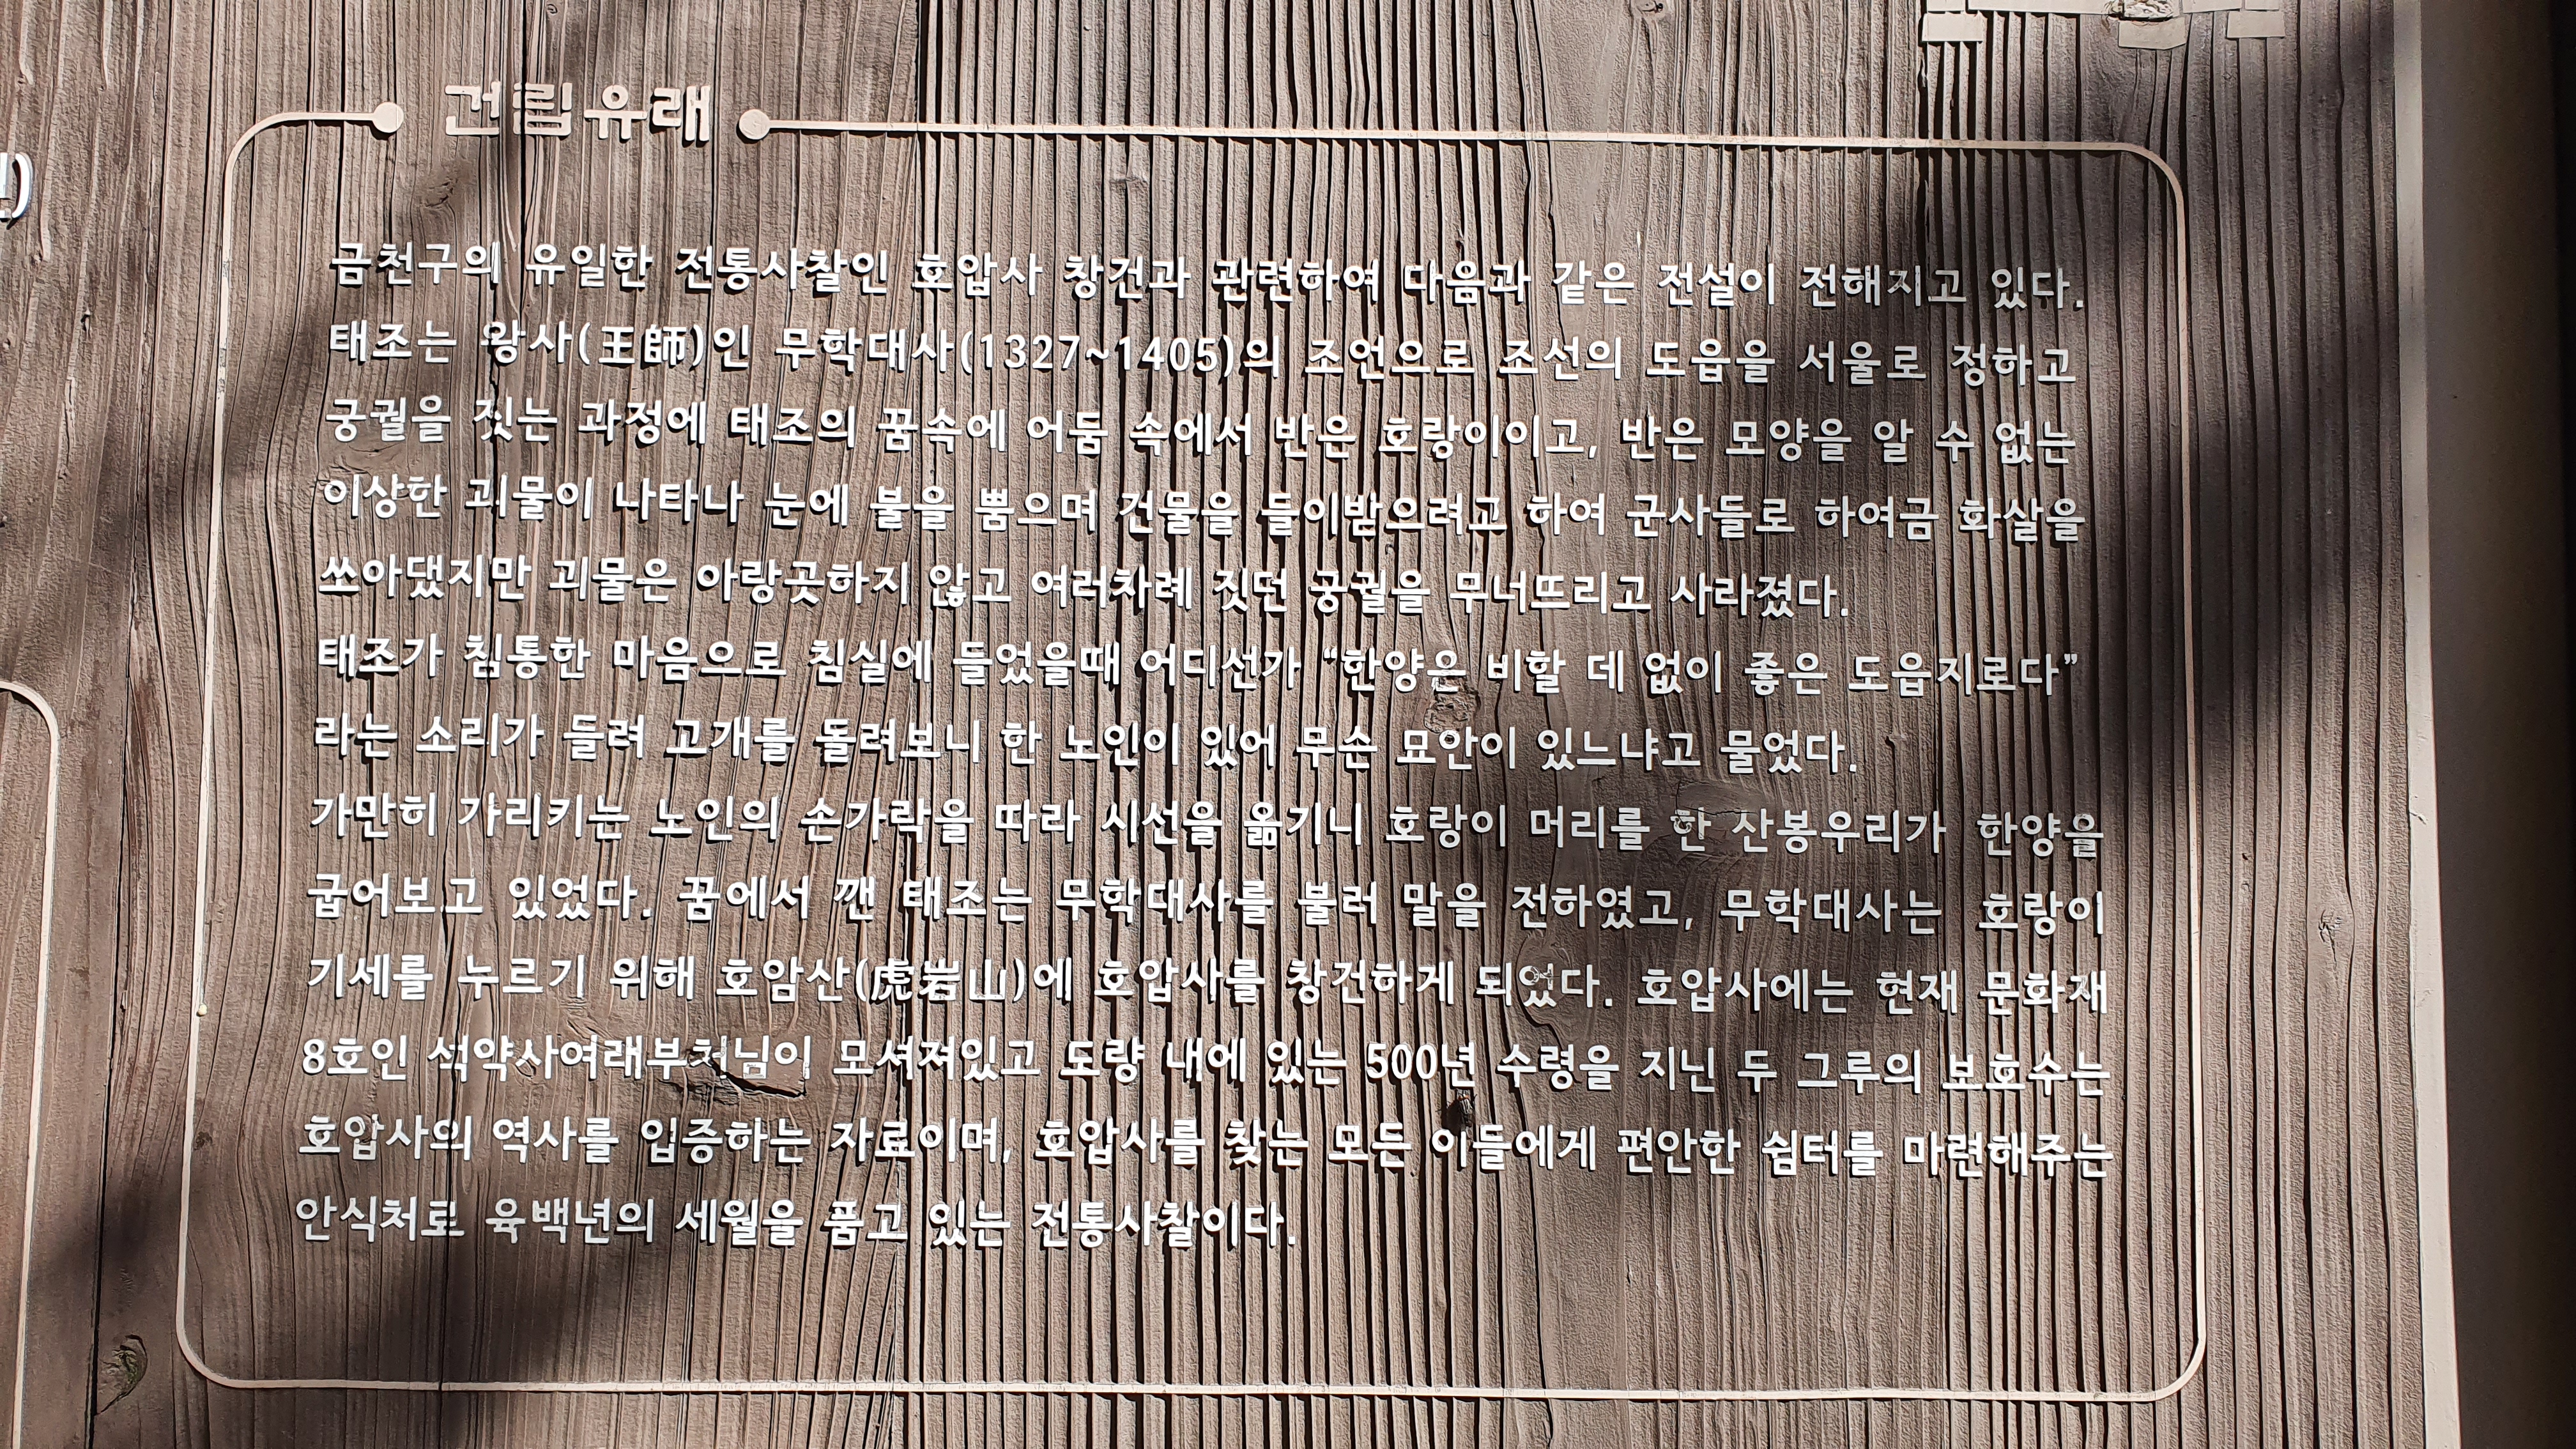 건립유래
금천구의 유일한 전통사찰인 호압사 창건과 관련하여 다음과 같은 전설이 전해지고 있다.
태조는 왕사(王師)인 무학대사(1327~1405)의 조언으로 조선의 도읍을 서울로 정하고
궁궐을 짓는 과정에 태조의 꿈속에 어둠 속에서 반은 호랑이이고, 반은 모양을 알 수 없는
이상한 괴물이 나타나 눈에 불을 뿜으며 건물을 들이받으려고 하여 군사들로 하여금 화살을
쏘아댔지만 괴물은 아랑곳하지 않고 여러차례 짓던 궁궐을 무너뜨리고 사라졌다.
태조가 침통한 마음으로 침실에 들었을때 어디선가 “한양은 비할 데 없이 좋은 도읍지로다”
라는 소리가 들려 고개를 돌려보니 한 노인이 있어 무슨 묘안이 있느냐고 물었다.
가만히 가리키는 노인의 손가락을 따라 시선을 옮기니 호랑이 머리를 한 산봉우리가 한양을
굽어보고 있었다. 꿈에서 깬 태조는 무학대사를 불러 말을 전하였고, 무학대사는 호랑이
기세를 누르기 위해 호암산(虎岩山)에 호압사를 창건하게 되었다. 호압사에는 현재 문화재
8호인 석약사여래부처님이 모셔져있고 도량 내에 있는 500년 수령을 지닌 두 그루의 보호수는
호압사의 역사를 입증하는 자료이며, 호압사를 찾는 모든 이들에게 편안한 쉼터를 마련해주는
안식처로 육백년의 세월을 품고 있는 전통사찰이다.